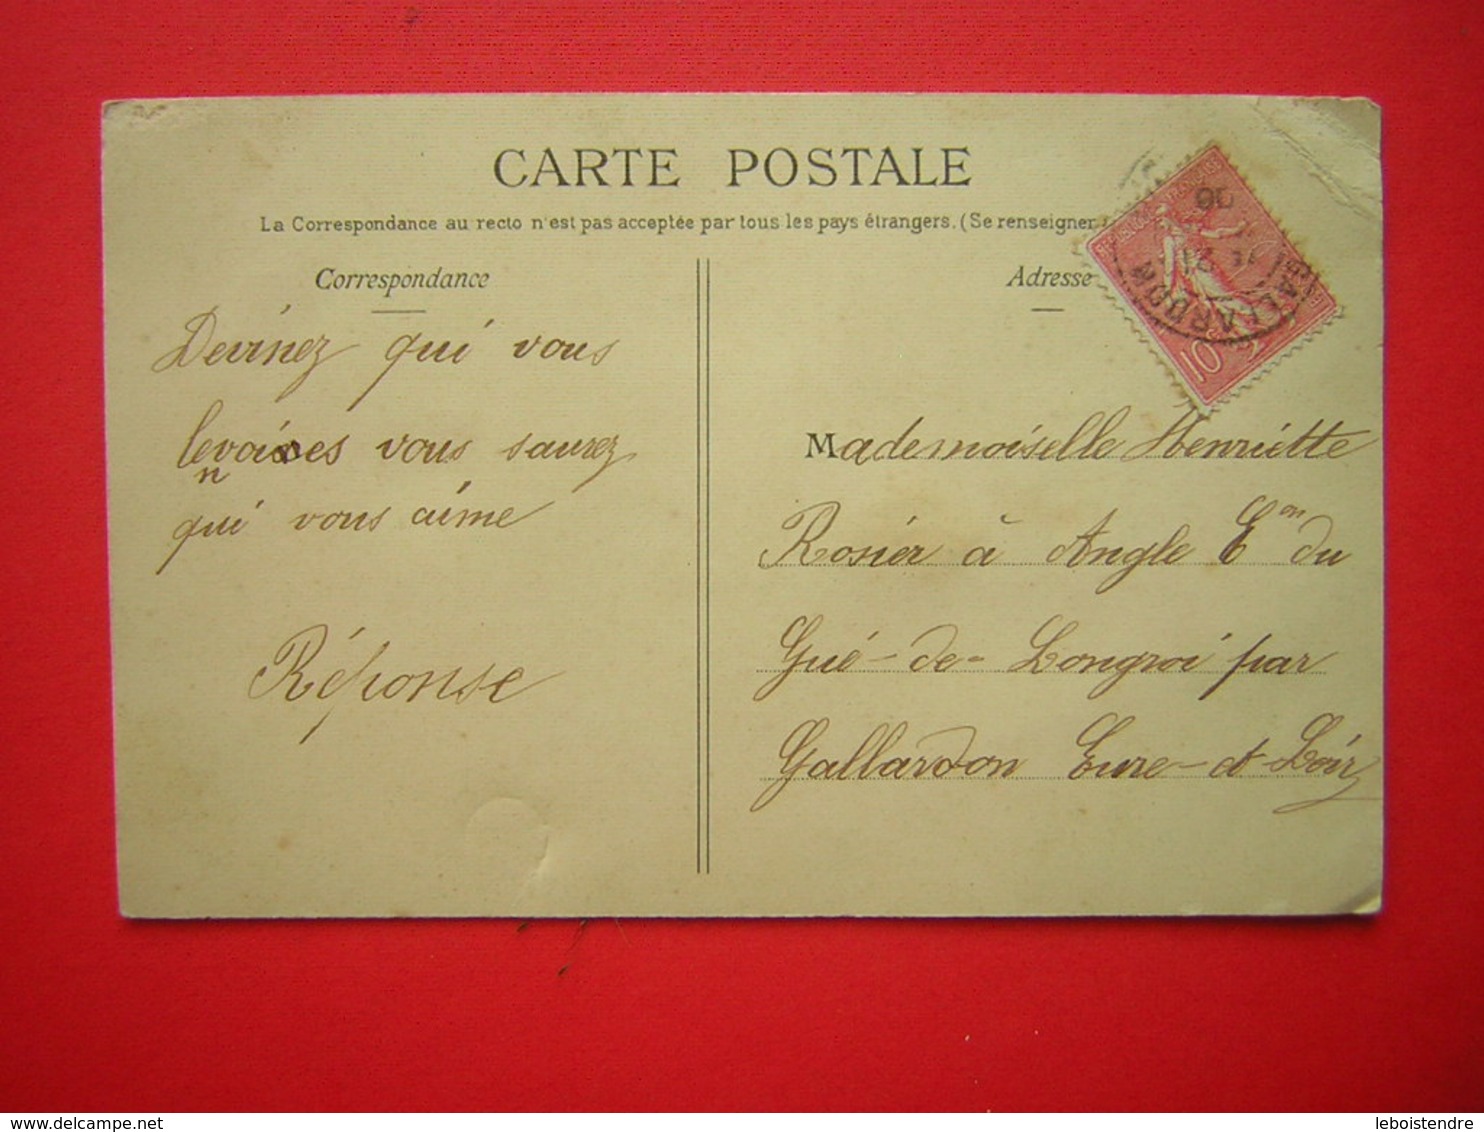 CARTE POSTALE
La Correspondance au recto n'est pas acceptée par tous les pays étrangers. (Se renseigner
Correspondance
Adresse
Devinez qui vous
qui vous aime
Réponse
Mademoiselle Henriette
Rosier à Angle Con du
Gué-de-Longroi par
Gallardon Eure-et-Loir
10
06
21
GALLARDON
vous saurez
delcampe.net
leboistendre